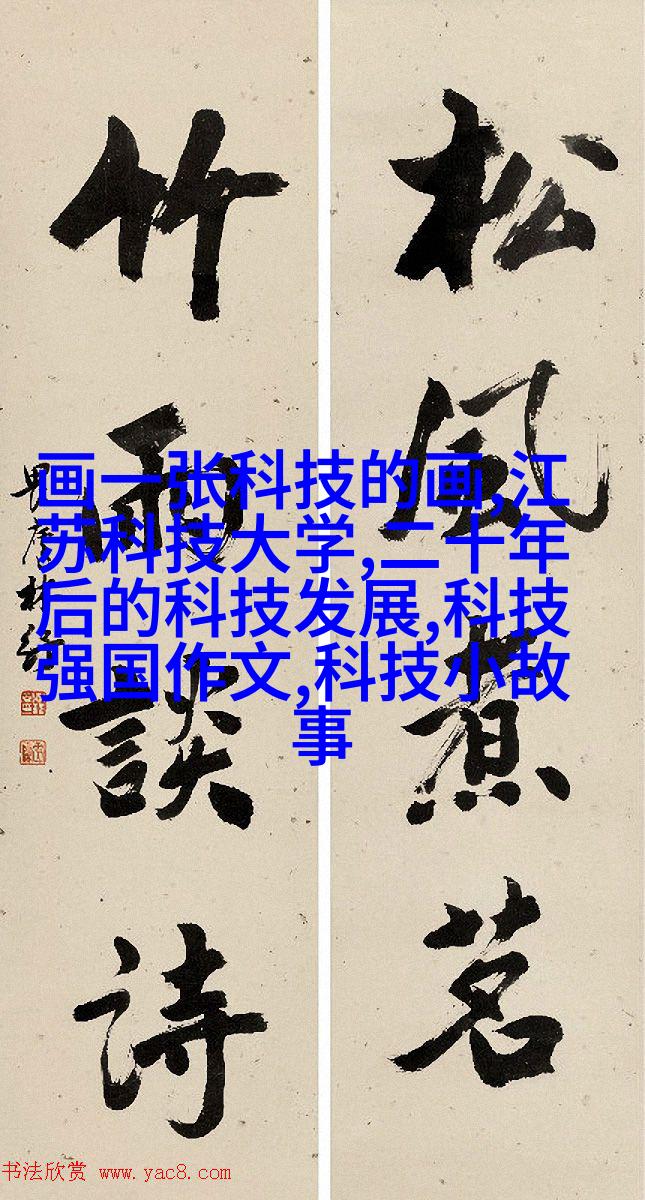 松風煮茗
竹雨談詩
林
画一张科技的画,江
苏科技大学,二十年
后的科技发展,科技
强国作文,科技小故
事
书法欣赏 www.yac8.com